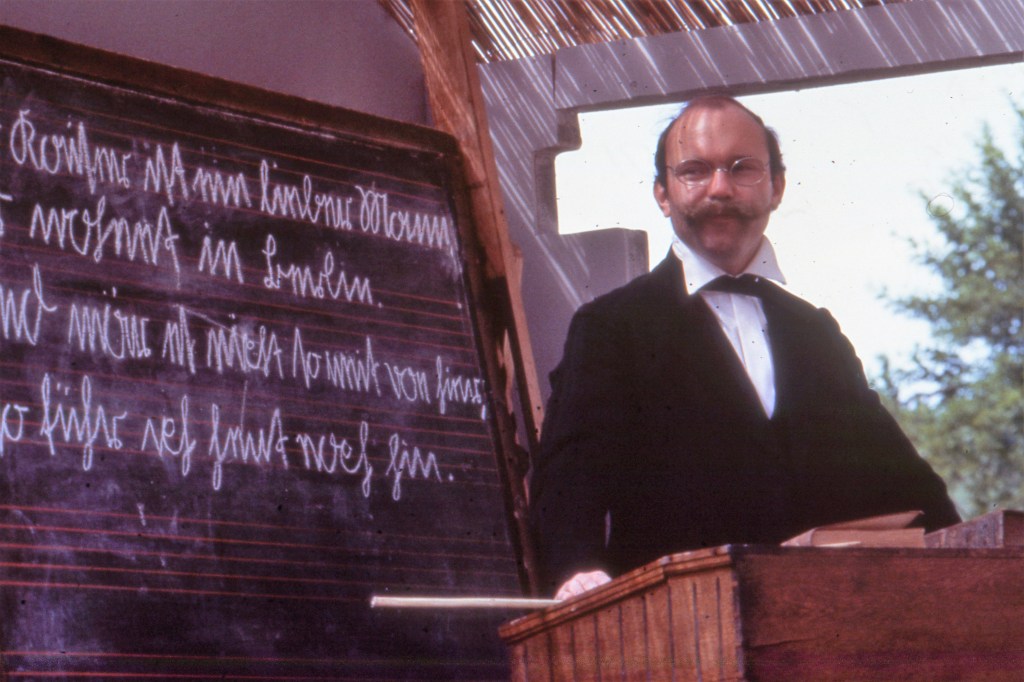 Kaiser ist ein lieber Mann,
wohnet in Berlin.
nd wär es nicht so weit von hier,
o führ ich heut noch hin.